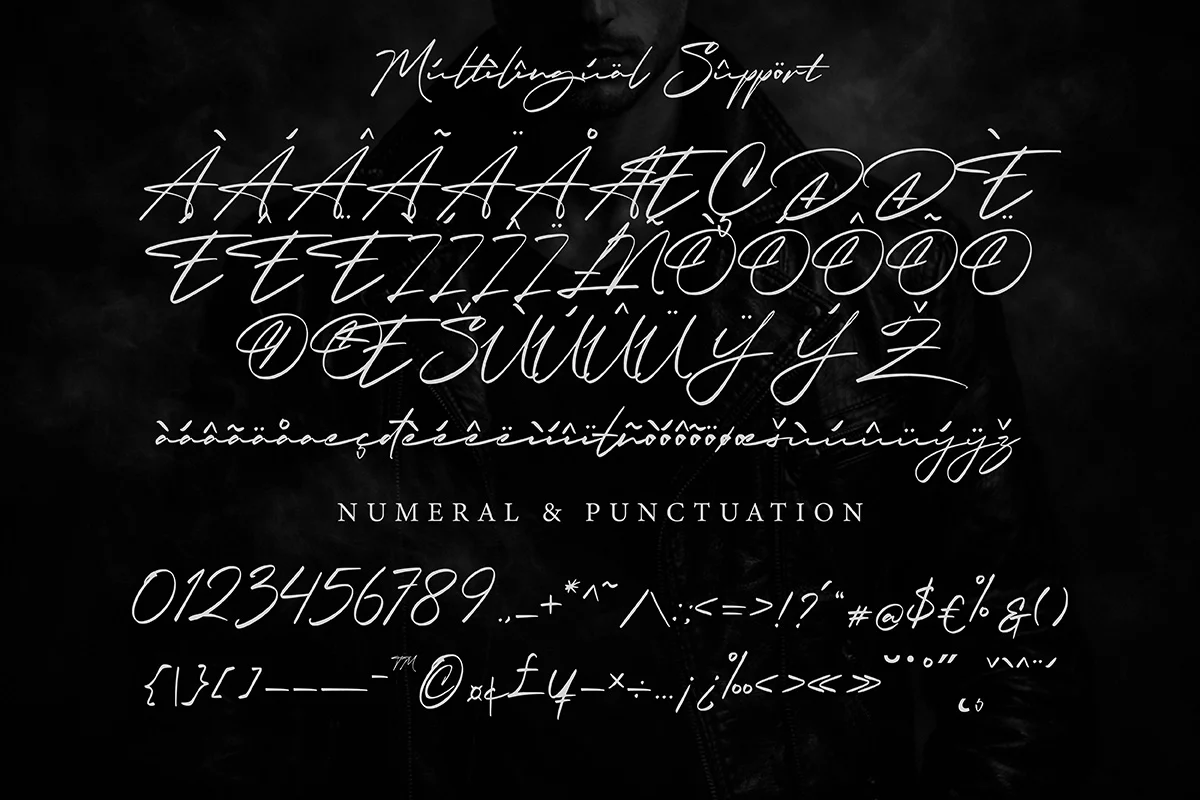 Múltìlîngúäl Sûppört
ÀÁÂÃÄÅÆÇÐĐÈ
ÉÊËÌÍÎÏŁÑÒÓÔÕÖ
ØŒŠÙÚÛÜŸÝŽ
àáâãäåæçđèéêëìíîïłñòóôõöøœšùúûüýÿž
NUMERAL & PUNCTUATION
0123456789.,_+*^~/\:;<=>!?´“#@$€%&()
{|}[]—–—-™©¤¢£¥−×÷…¡¿‰<>«»